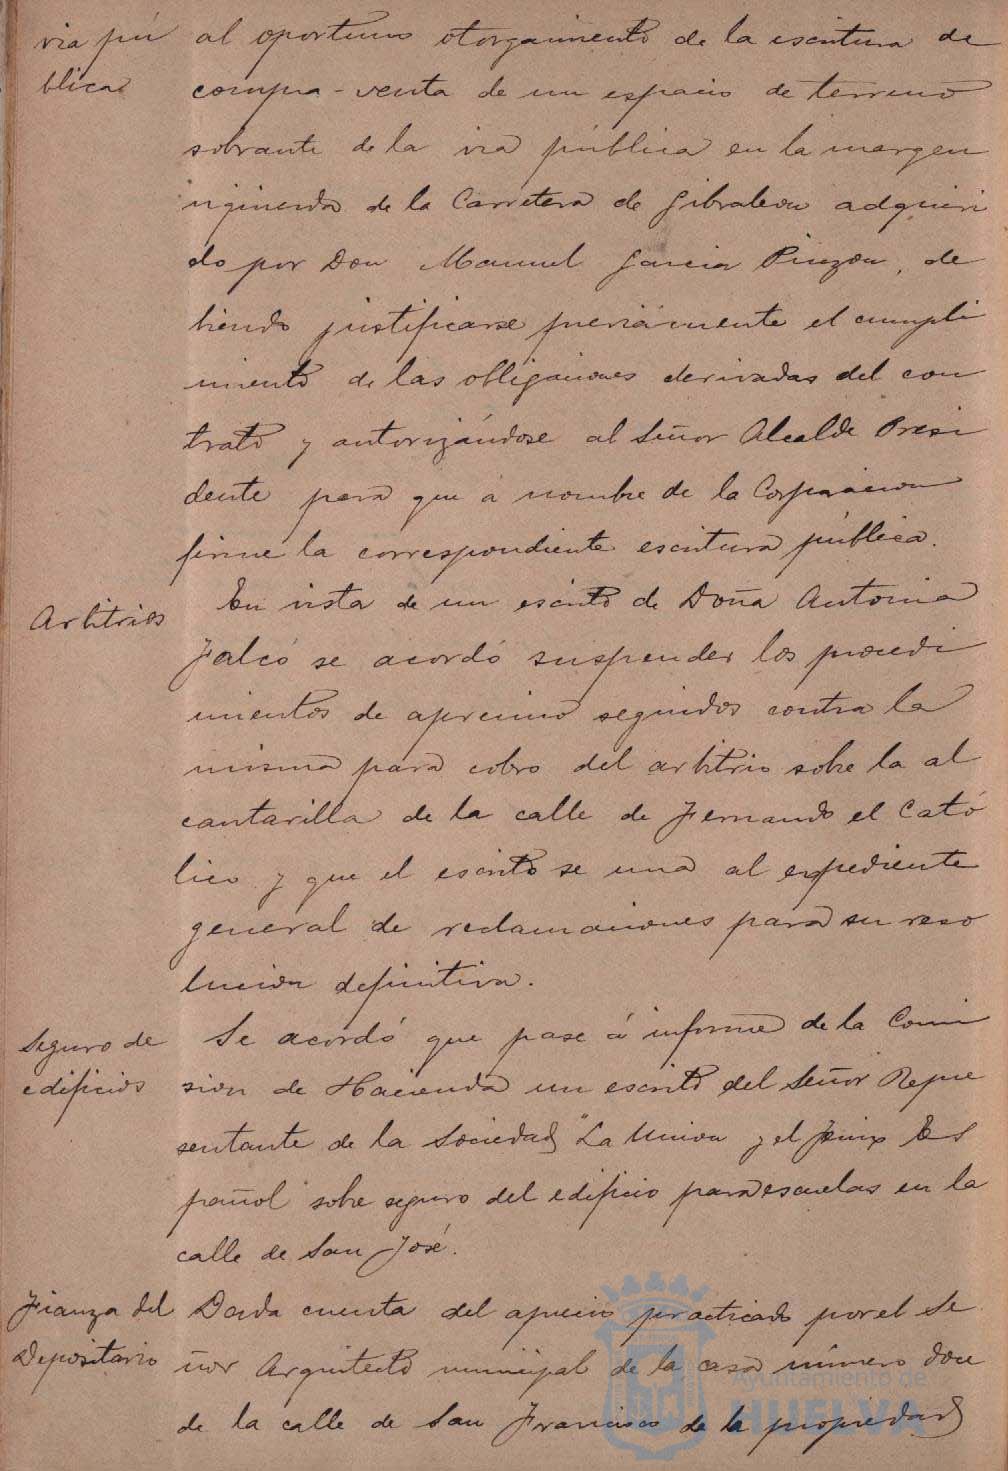 via pú
blica
al oportuno otorgamiento de la escritura de
compra-venta de un espacio de terreno
sobrante de la via pública en la margen
izquierda de la Carretera de Gibraleon adquiri
do por Don Manuel Garcia Pinzon, de
biendo justificarse previamente el cumpli
miento de las obligaciones derivadas del con
trato y autorizándose al Señor Alcalde Presi
dente para que á nombre de la Corporacion
firme la correspondiente escritura pública.
Arbitrios
En vista de un escrito de Doña Antonia
Falcó se acordó suspender los procedi
mientos de apremio seguidos contra la
misma para cobro del arbitrio sobre la al
cantarilla de la calle de Fernando el Cató
lico y que el escrito se una al expediente
general de reclamaciones para su reso
lucion definitiva.
Seguro de
edificios
Se acordó que pase á informe de la Comi
sion de Hacienda un escrito del Señor Repre
sentante de la Sociedad "La Union y el Fenix Es
pañol" sobre seguro del edificio para escuelas en la
calle de San José.
Fianza del
Depositario
Dada cuenta del aprecio practicado por el Se
ñor Arquitecto municipal de la casa número doce
de la calle de San Francisco de la propiedad
Ayuntamiento de
HUELVA